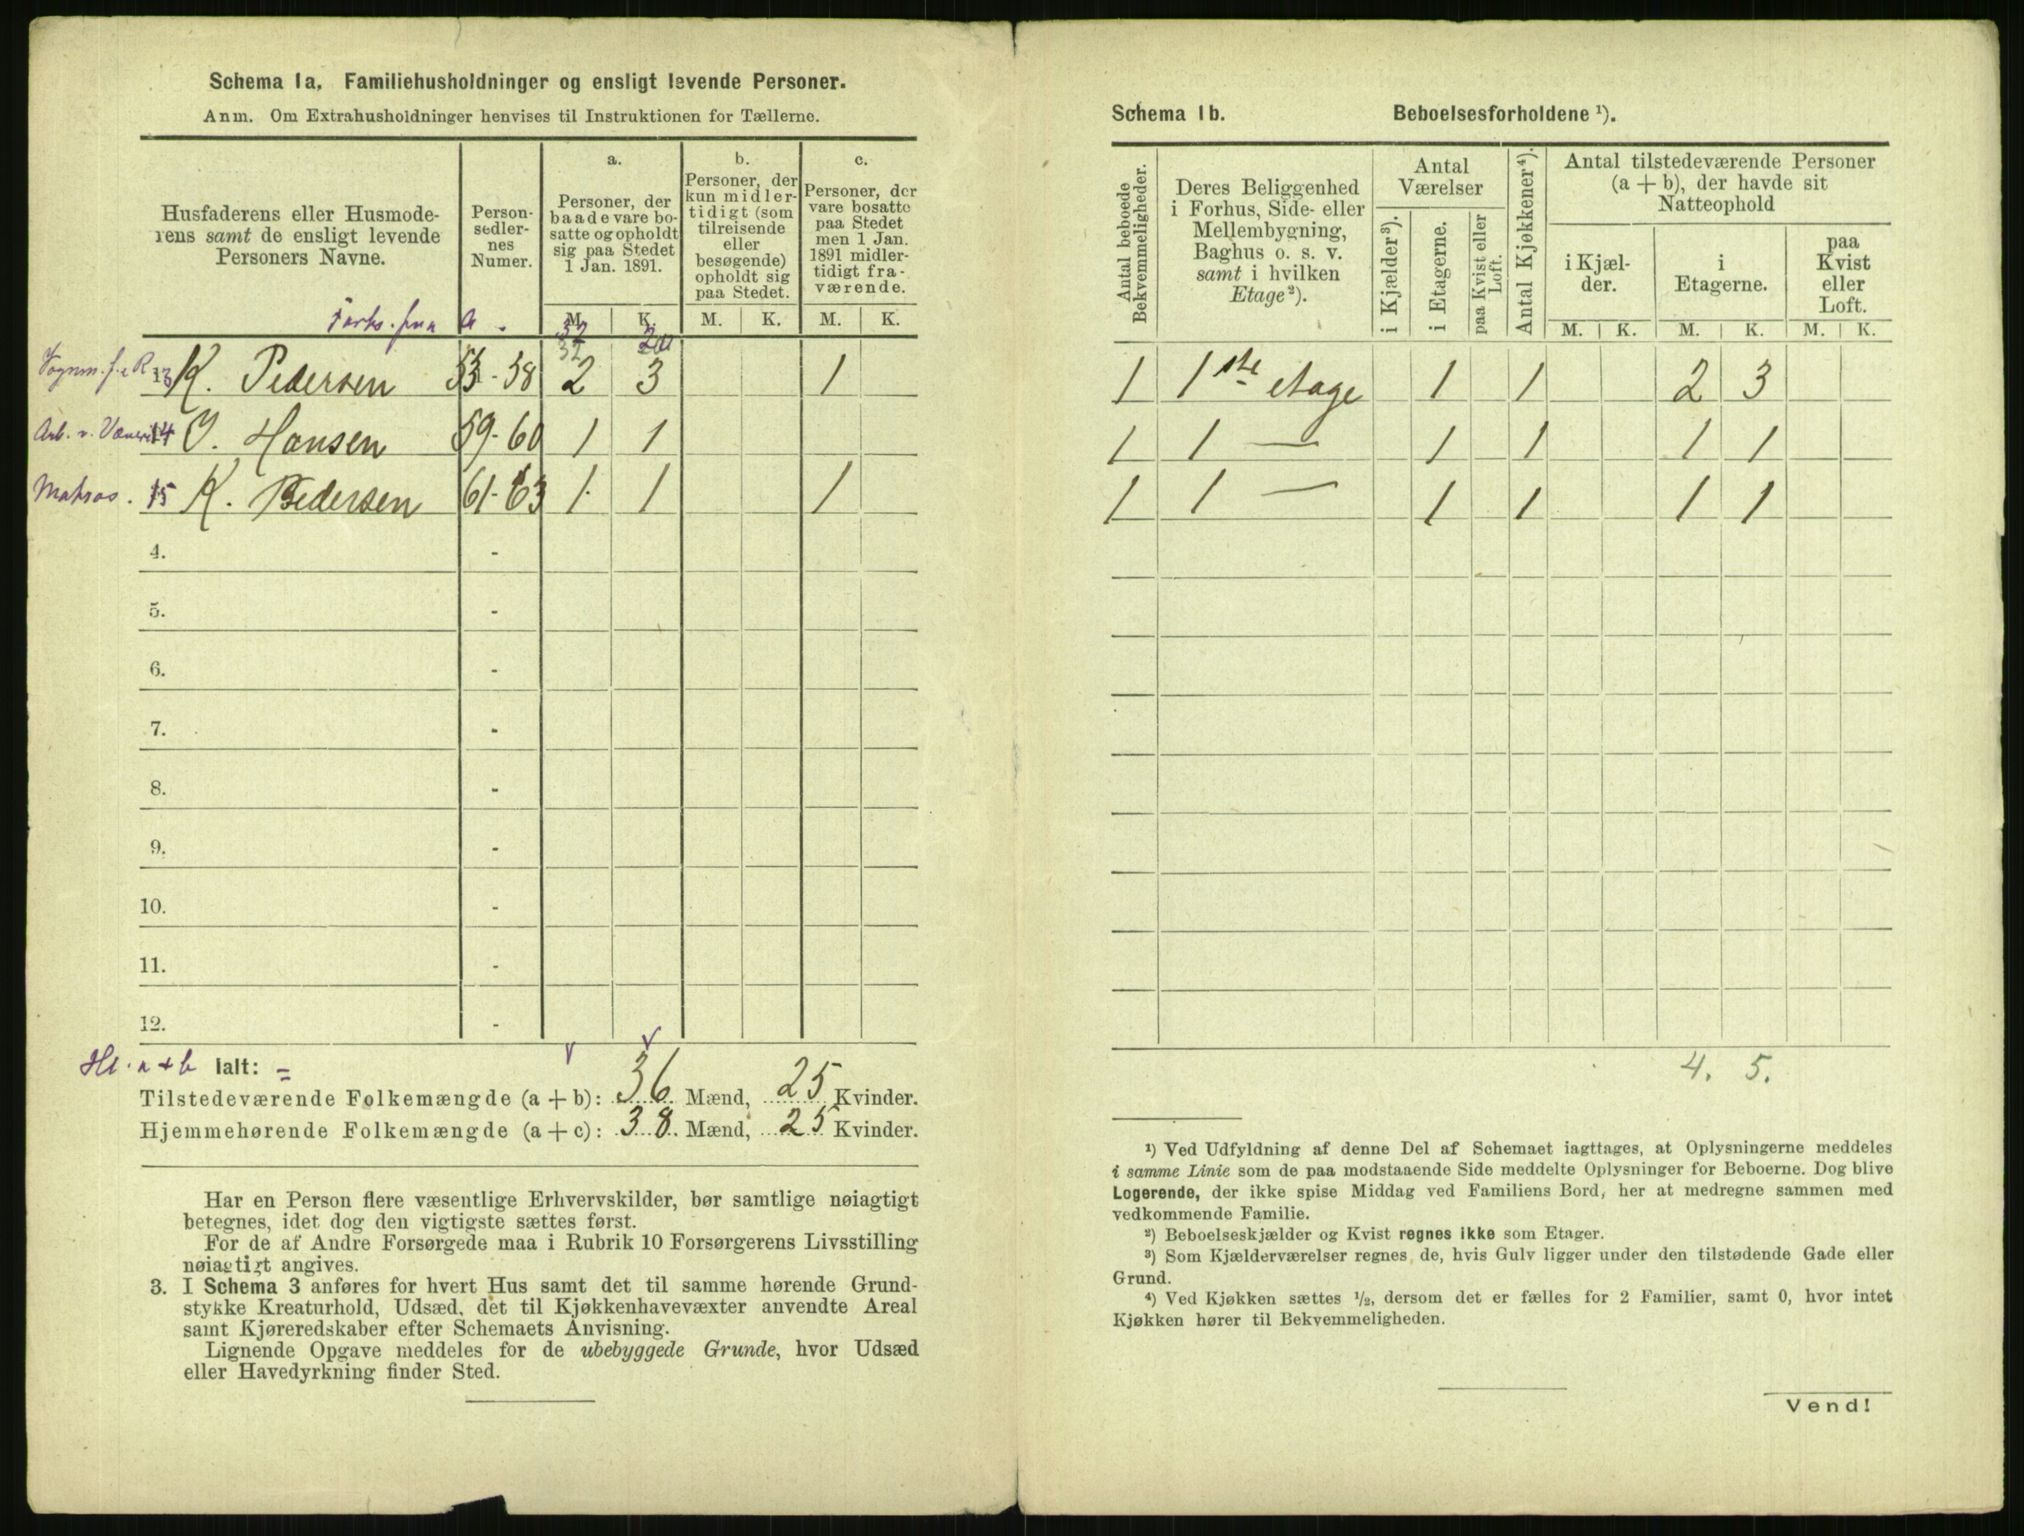 Schema 1a. Familiehusholdninger og ensligt levende Personer.
Anm. Om Extrahusholdninger henvises til Instruktionen for Tællerne.
Husfaderens eller Husmode-
rens samt de ensligt levende
Personers Navne.
Person-
sedler-
nes
Numer.
a.
Personer, der
baade vare bo-
satte og opholdt
sig paa Stedet
1 Jan. 1891.
b.
Personer, der
kun midler-
tidigt (som
tilreisende
eller
besøgende)
opholdt sig
paa Stedet.
c.
Personer, der
vare bosatte
paa Stedet
men 1 Jan.
1891 midler-
tidigt fra-
værende.
M. K. M. K. M. K.
13 K. Pedersen 53-58 2 3 1
14 J. Hansen 59-60 1 1
Matros. 15 K. Pedersen 61-63 1 1 1
4. -
5. -
6. -
7. -
8. -
9. -
10. -
11. -
12. -
a + b Ialt: =
Tilstedeværende Folkemængde (a + b): 36 Mænd, 25 Kvinder.
Hjemmehørende Folkemængde (a + c): 38 Mænd, 25 Kvinder.
Har en Person flere væsentlige Erhvervskilder, bør samtlige nøiagtigt
betegnes, idet dog den vigtigste sættes først.
For de af Andre Forsørgede maa i Rubrik 10 Forsørgerens Livsstilling
nøiagtigt angives.
3. I Schema 3 anføres for hvert Hus samt det til samme hørende Grund-
stykke Kreaturhold, Udsæd, det til Kjøkkenhavevæxter anvendte Areal
samt Kjøreredskaber efter Schemaets Anvisning.
Lignende Opgave meddeles for de ubebyggede Grunde, hvor Udsæd
eller Havedyrkning finder Sted.
Schema 1b. Beboelsesforholdene ¹).
Antal beboede
Bekvemmeligheder.
Deres Beliggenhed
i Forhus, Side- eller
Mellembygning,
Baghus o. s. v.
samt i hvilken
Etage²).
Antal
Værelser
i Kjælder³).
i Etagerne.
paa Kvist eller
Loft.
Antal Kjøkkener⁴).
Antal tilstedeværende Personer
(a + b), der havde sit
Natteophold
i Kjæl-
der.
i
Etagerne.
paa
Kvist
eller
Loft.
M. K. M. K. M. K.
1 1ste etage 1 1 2 3
1 1 — 1 1 1 1
1 1 — 1 1 1 1
4. 5.
¹) Ved Udfyldning af denne Del af Schemaet iagttages, at Oplysningerne meddeles
i samme Linie som de paa modstaaende Side meddelte Oplysninger for Beboerne. Dog blive
Logerende, der ikke spise Middag ved Familiens Bord, her at medregne sammen med
vedkommende Familie.
²) Beboelseskjælder og Kvist regnes ikke som Etager.
³) Som Kjælderværelser regnes de, hvis Gulv ligger under den tilstødende Gade eller
Grund.
⁴) Ved Kjøkken sættes ½, dersom det er fælles for 2 Familier, samt 0, hvor intet
Kjøkken hører til Bekvemmeligheden.
Vend!